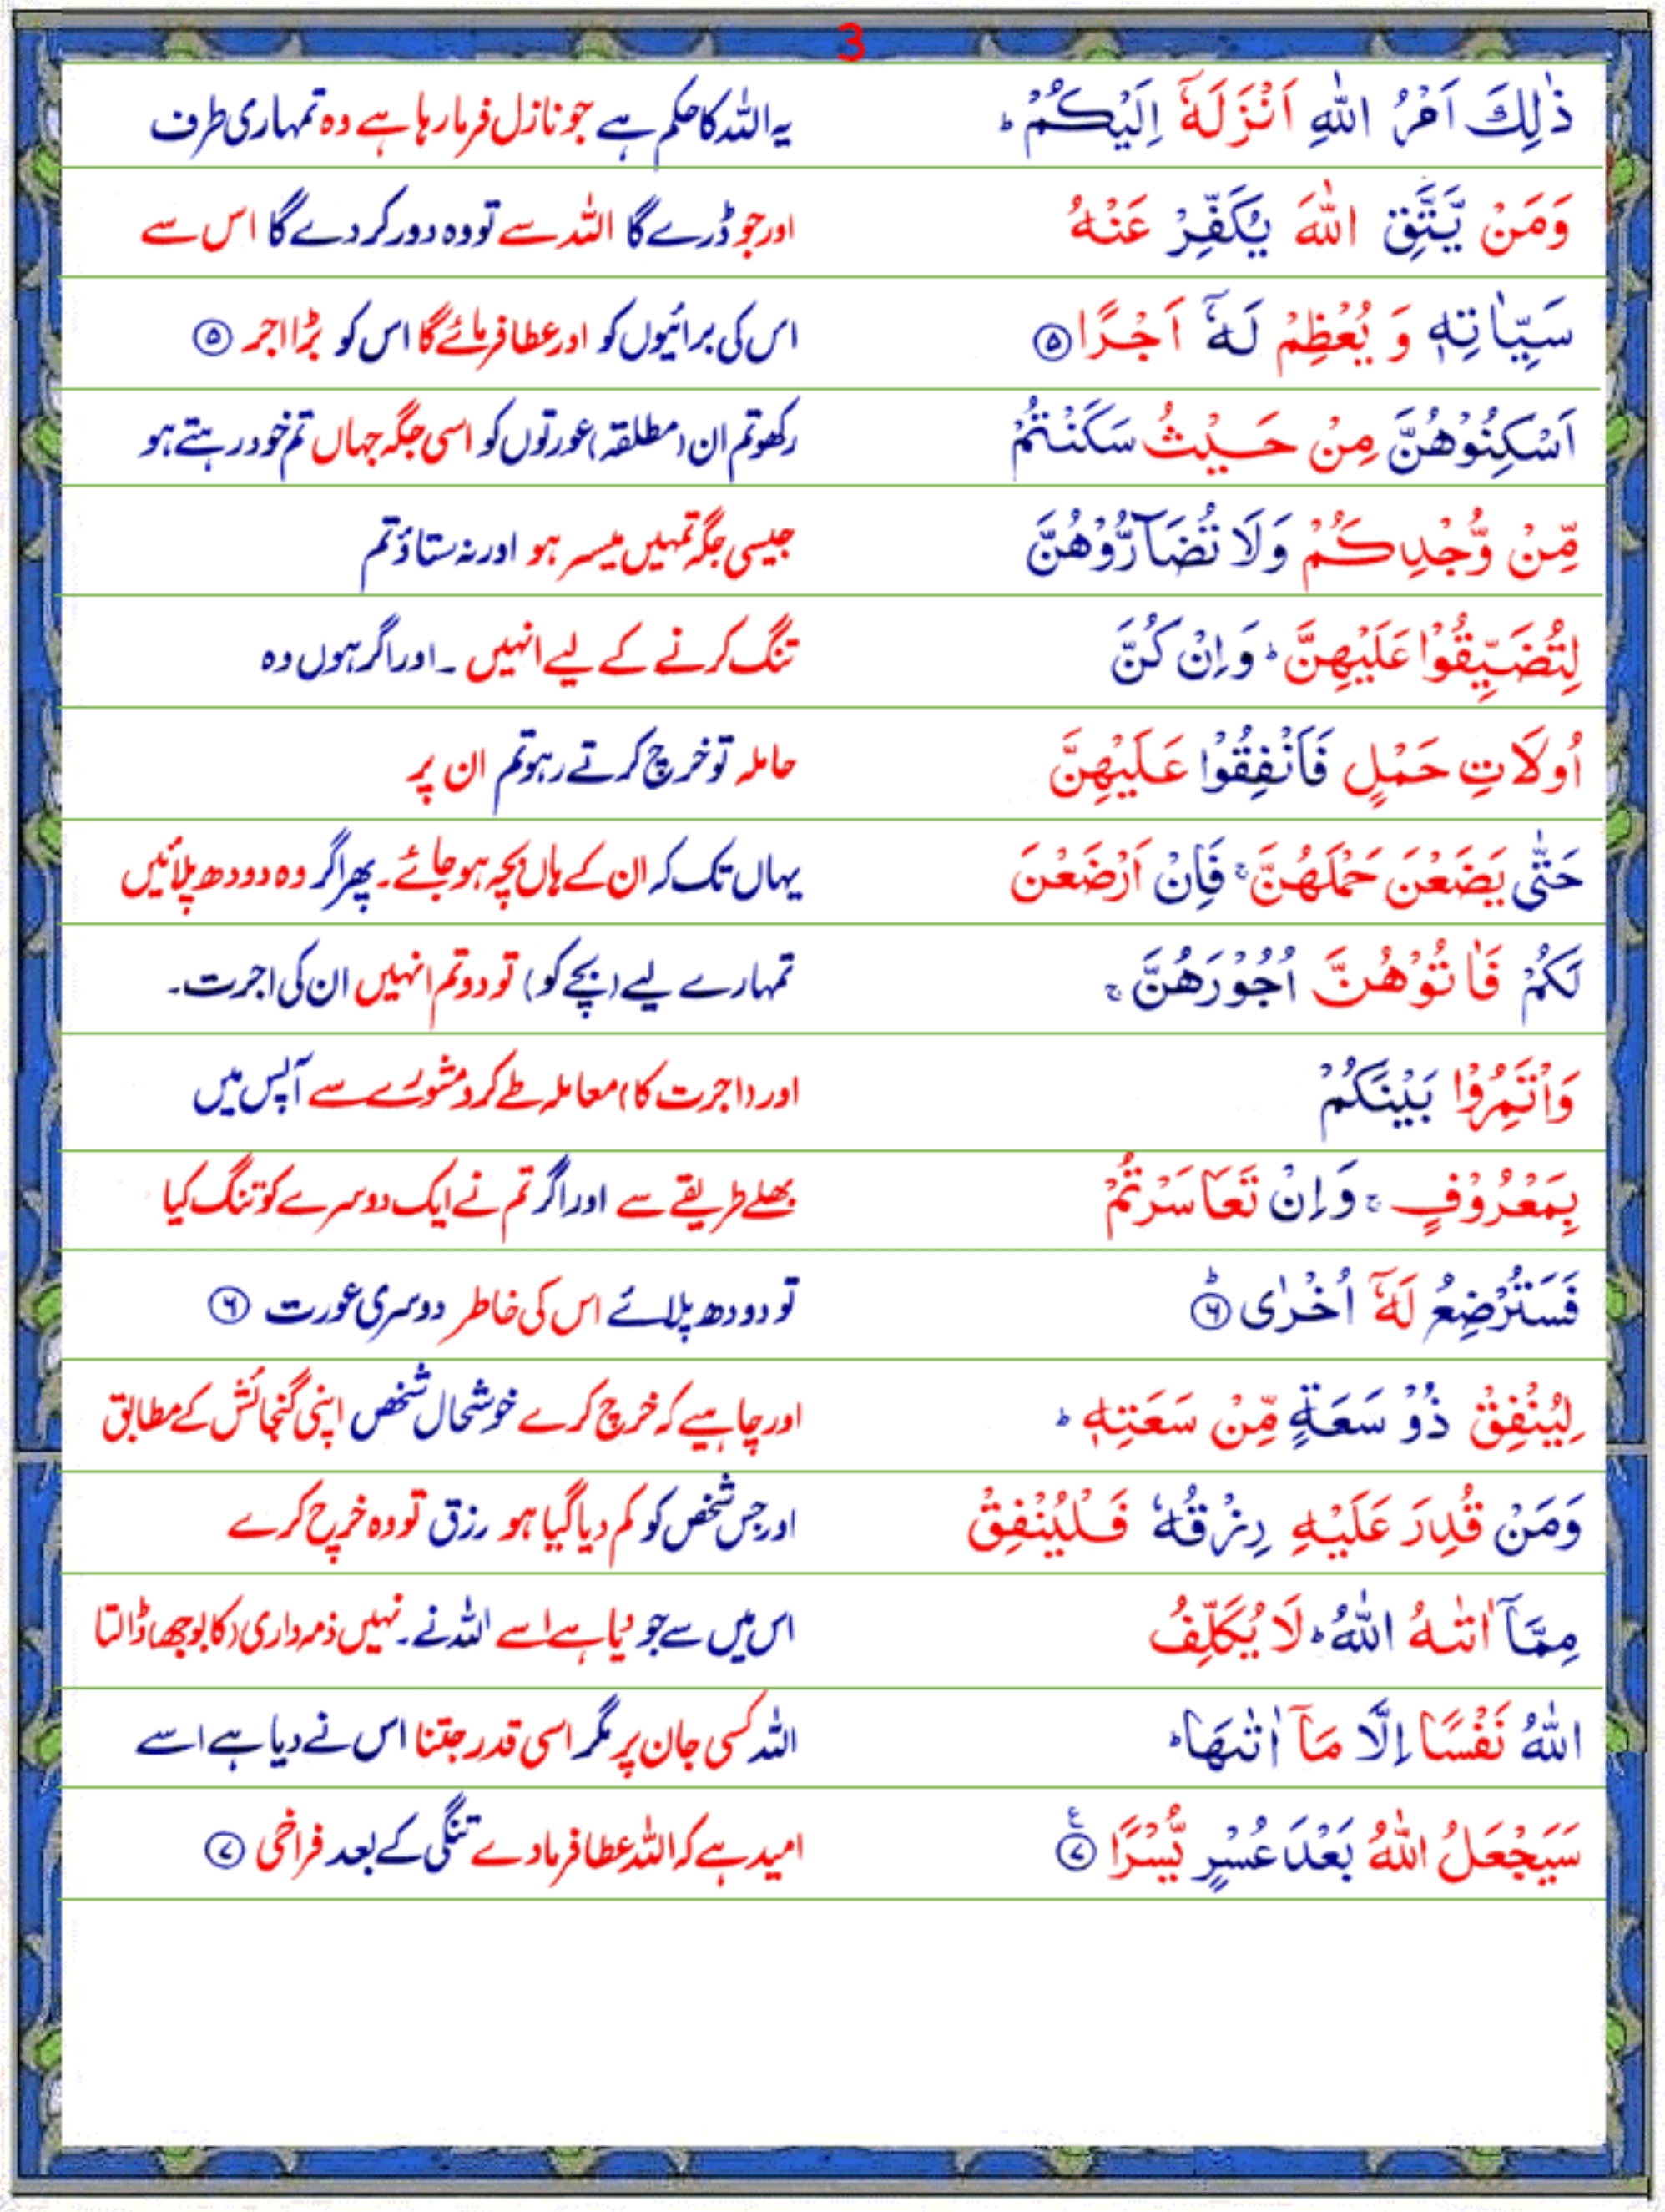 3
ذٰلِكَ اَمْرُ اللّٰهِ اَنْزَلَهٗۤ اِلَیْكُمْ ؕ یہ اللہ کا حکم ہے جو نازل فرما رہا ہے وہ تمہاری طرف
وَمَنْ یَّتَّقِ اللّٰهَ یُكَفِّرْ عَنْهُ اور جو ڈرے گا اللہ سے تو وہ دور کر دے گا اس سے
سَیِّاٰتِهٖ وَ یُعْظِمْ لَهٗۤ اَجْرًا ۵ اس کی برائیوں کو اور عطا فرمائے گا اس کو بڑا اجر ۵
اَسْكِنُوْهُنَّ مِنْ حَیْثُ سَكَنْتُمْ رکھو تم ان (مطلقہ) عورتوں کو اسی جگہ جہاں تم خود رہتے ہو
مِّنْ وُّجْدِكُمْ وَلَا تُضَآرُّوْهُنَّ جیسی جگہ تمہیں میسر ہو اور نہ ستاؤ تم
لِتُضَیِّقُوْا عَلَیْهِنَّ ؕ وَاِنْ كُنَّ تنگ کرنے کے لیے انہیں ۔ اور اگر ہوں وہ
اُولَاتِ حَمْلٍ فَاَنْفِقُوْا عَلَیْهِنَّ حاملہ تو خرچ کرتے رہو تم ان پر
حَتّٰى یَضَعْنَ حَمْلَهُنَّ ۚ فَاِنْ اَرْضَعْنَ یہاں تک کہ ان کے ہاں بچہ ہو جائے۔ پھر اگر وہ دودھ پلائیں
لَكُمْ فَاٰتُوْهُنَّ اُجُوْرَهُنَّ ۚ تمہارے لیے (بچے کو) تو دو تم انہیں ان کی اجرت۔
وَاْتَمِرُوْا بَیْنَكُمْ اور (اجرت کا) معاملہ طے کرو مشورے سے آپس میں
بِمَعْرُوْفٍ ۚ وَاِنْ تَعَاسَرْتُمْ بھلے طریقے سے اور اگر تم نے ایک دوسرے کو تنگ کیا
فَسَتُرْضِعُ لَهٗۤ اُخْرٰى ؕ ۶ تو دودھ پلائے اس کی خاطر دوسری عورت ۶
لِیُنْفِقْ ذُوْ سَعَةٍ مِّنْ سَعَتِهٖ ؕ اور چاہیے کہ خرچ کرے خوشحال شخص اپنی گنجائش کے مطابق
وَمَنْ قُدِرَ عَلَیْهِ رِزْقُهٗ فَلْیُنْفِقْ اور جس شخص کو کم دیا گیا ہو رزق تو وہ خرچ کرے
مِمَّاۤ اٰتٰىهُ اللّٰهُ ؕ لَا یُكَلِّفُ اس میں سے جو دیا ہے اسے اللہ نے۔ نہیں ذمہ داری (کا بوجھ) ڈالتا
اللّٰهُ نَفْسًا اِلَّا مَاۤ اٰتٰىهَا ؕ اللہ کسی جان پر مگر اسی قدر جتنا اس نے دیا ہے اسے
سَیَجْعَلُ اللّٰهُ بَعْدَ عُسْرٍ یُّسْرًا ۷ ع امید ہے کہ اللہ عطا فرما دے تنگی کے بعد فراخی ۷